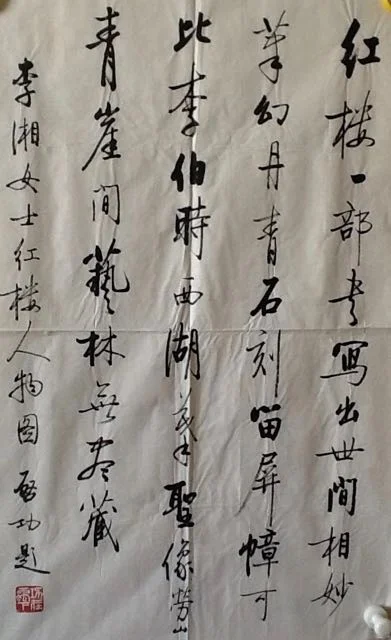 红楼一部書寫出世間相妙
筆幻丹青石刻留屏幛可
比李伯時西湖聖像劳山
青崖間藝林無盡藏
李湘女士红楼人物图 啓功题